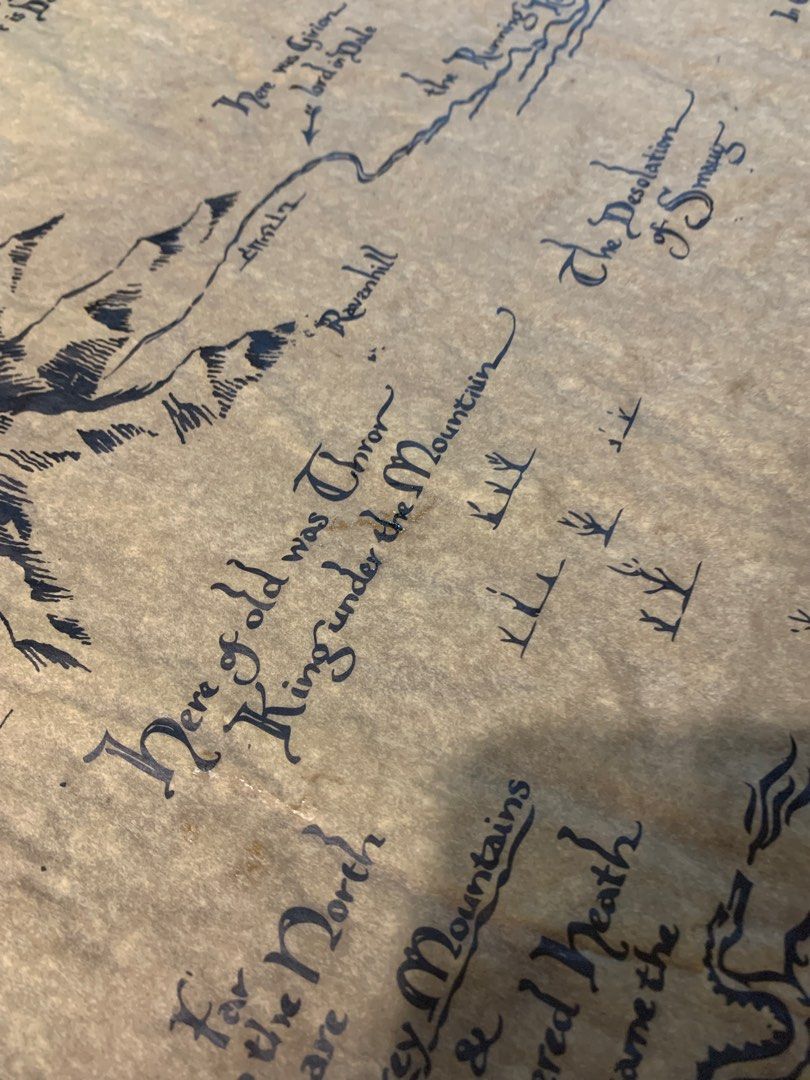 here was Girion
lord in Dale
the Running
The Desolation
of Smaug
Ravenhill
Here of old was Thror
King under the Mountain
Far
the North
are
ey Mountains
&
ered Heath
ame the